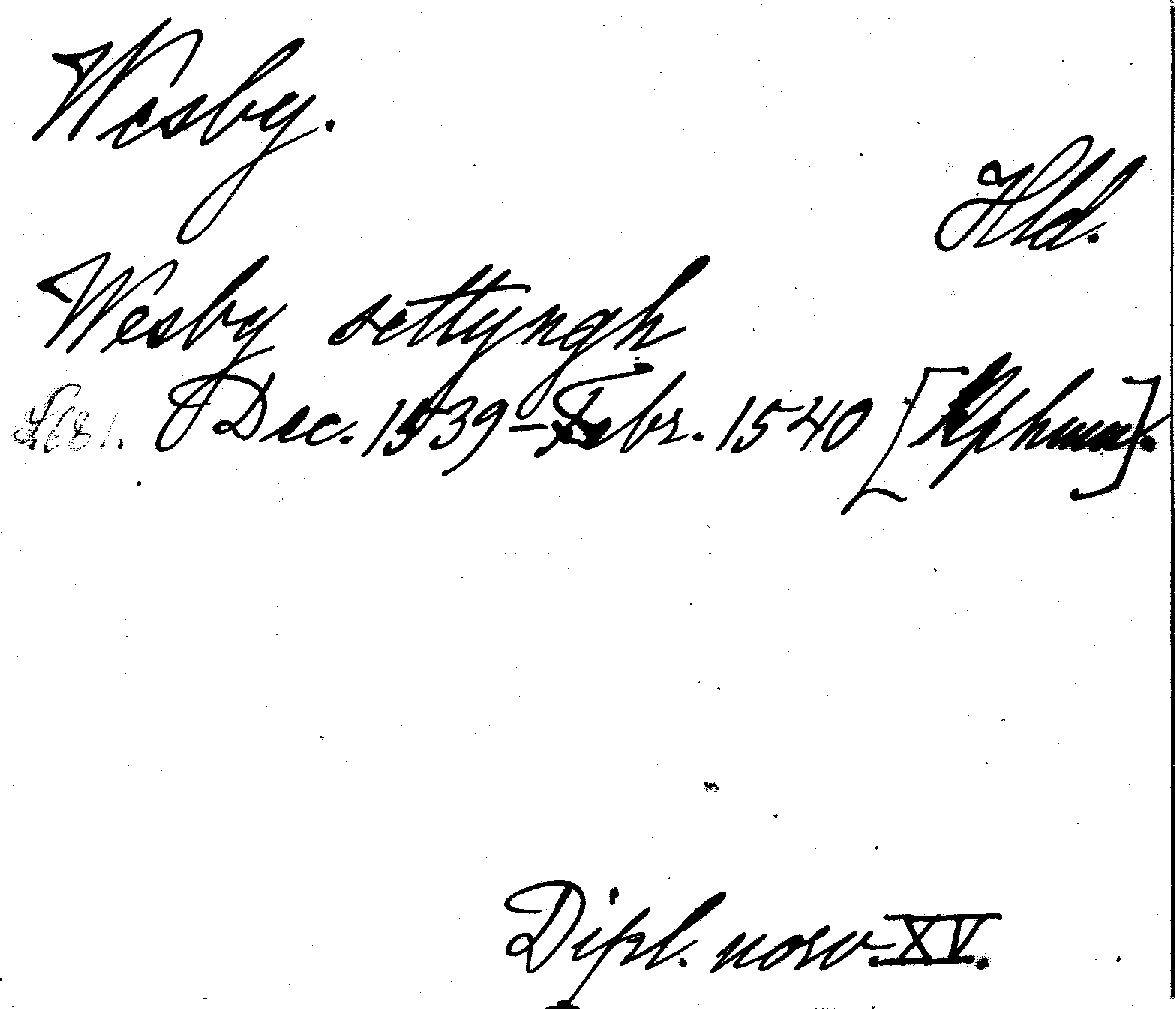 Wesby.
Hld.
Wesby settyngh
Dec. 1539-Febr. 1540 [Kphmn].
Dipl. norv. XV.